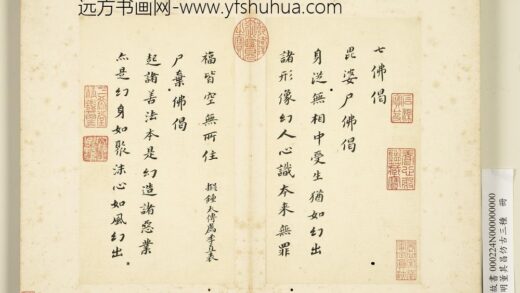 远方书画网-www.yfshuhua.com
七佛偈
毘婆尸佛偈
身從無相中受生猶如幻出
諸形像幻人心識本来無罪
福皆空無所住
擬鍾太傅薦季直表
尸棄佛偈
起諸善法本是幻造諸惡業
亦是幻身如聚沫心如風幻出
故書 000224N000000000
明董其昌仿古三種 冊